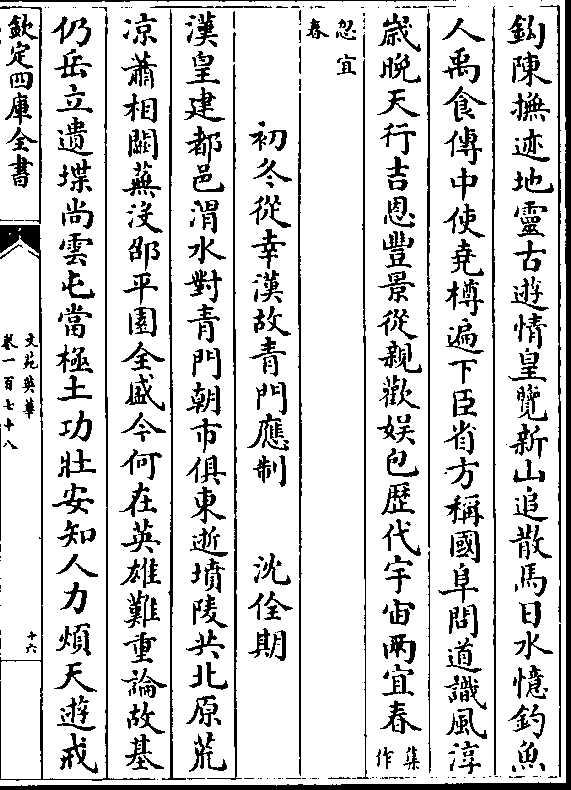 鈎陳撫迹地靈古遊情皇覽新山追散馬日水憶釣魚
人禹食傳中使堯樽遍下臣省方稱國阜問道識風淳
歲晚天行吉恩豐景從親歡娱包歴代宇宙兩宜春集作
忽宜春
初冬從幸漢故青門應制 沈佺期
漢皇建都邑渭水對青門朝市俱東逝墳陵共北原荒
凉蕭相闕蕪没邵平園全盛今何在英雄難重論故基
仍岳立遺堞尚雲屯當極土功壯安知人力煩天遊戒
欽定四庫全書
文苑英華
卷一百七十八
十六